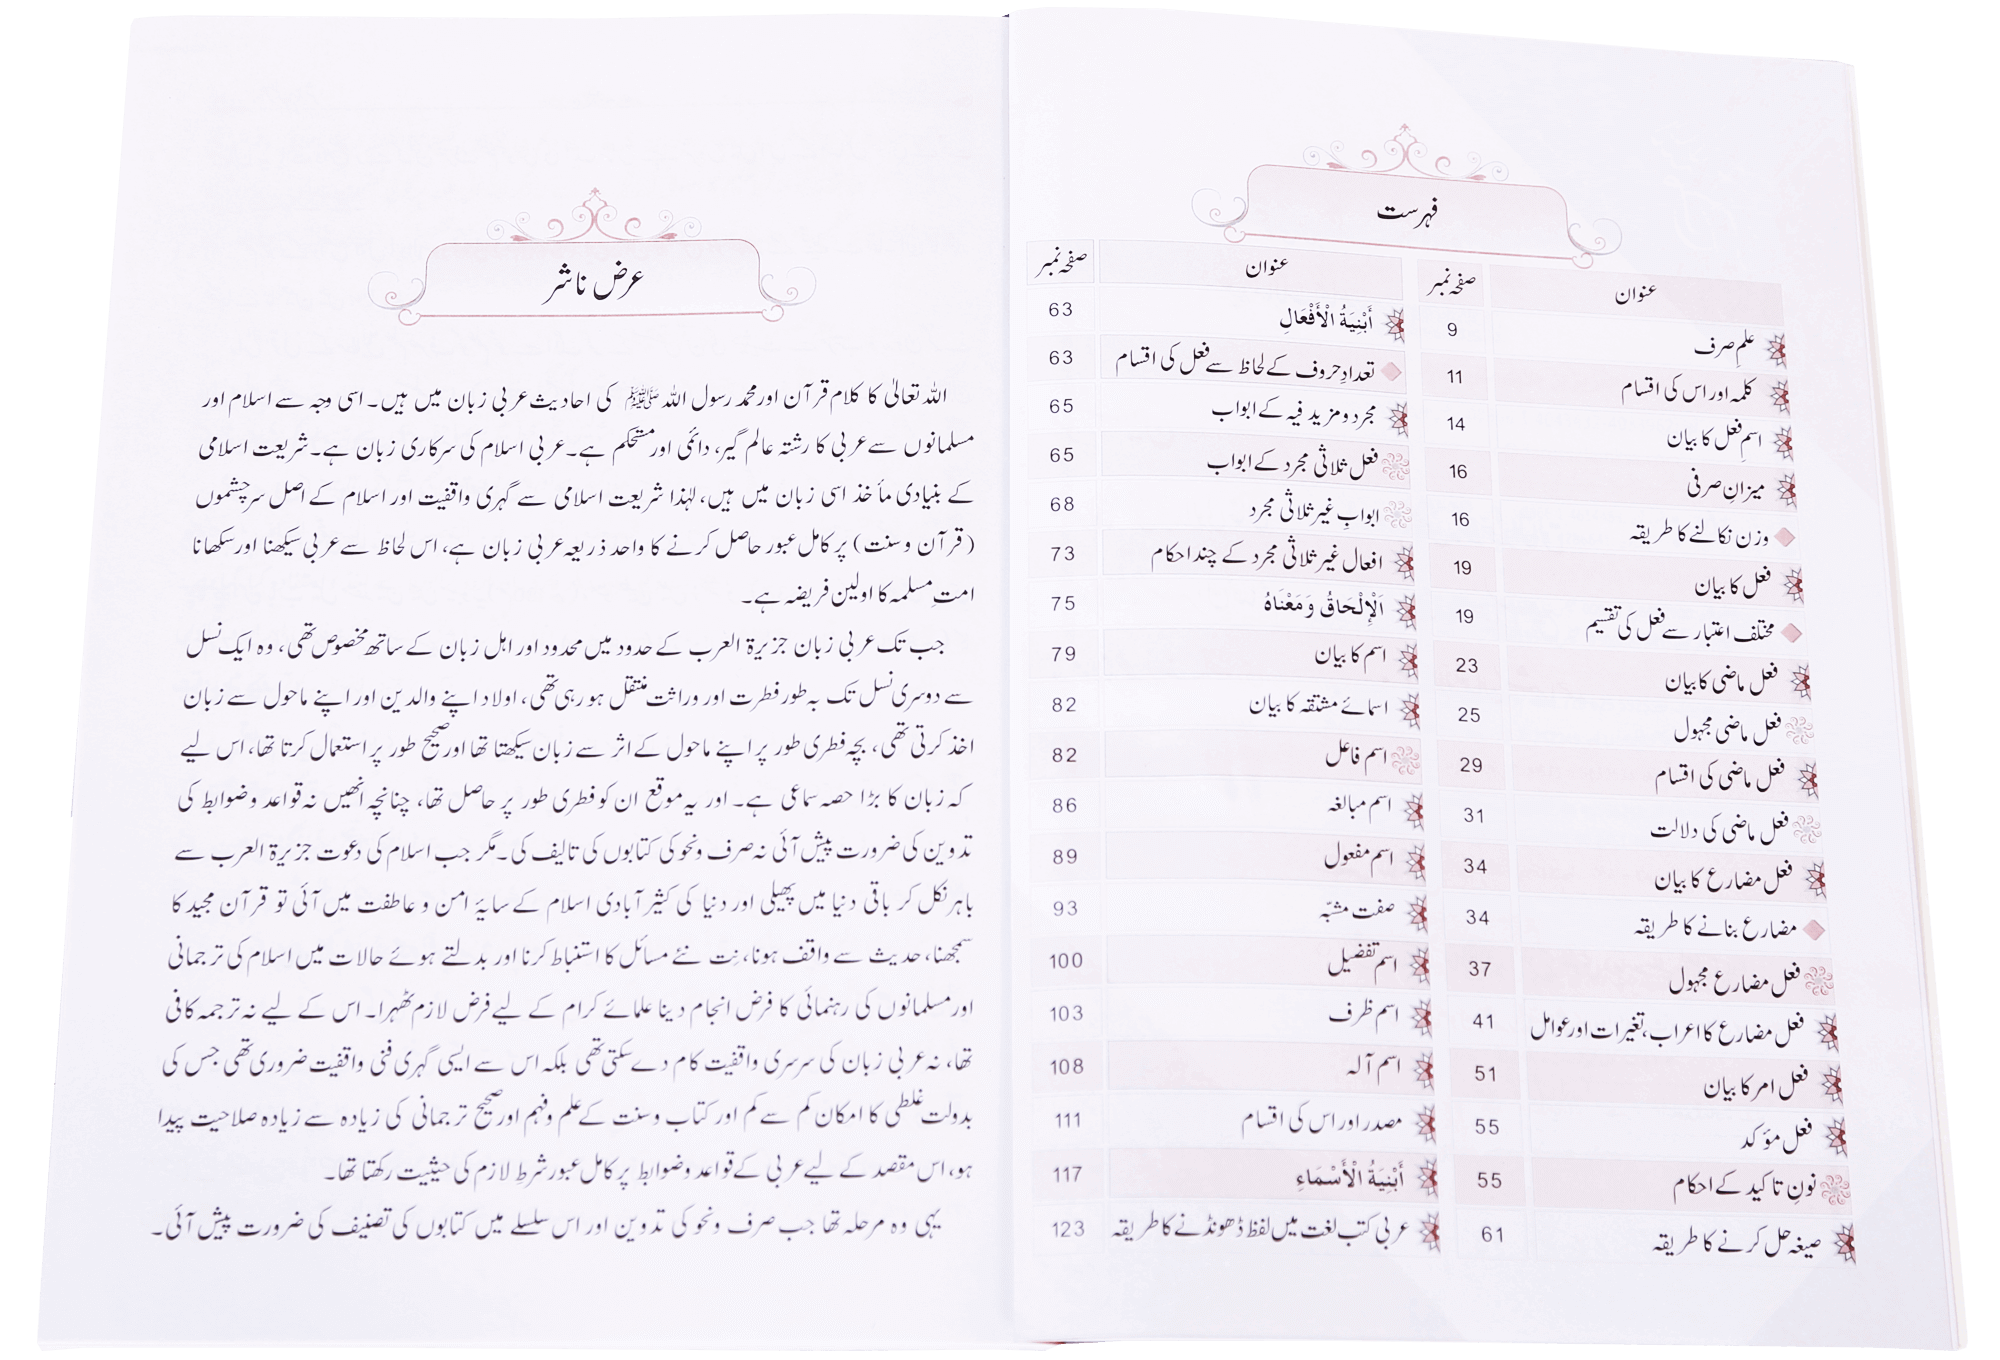 فہرست
عنوان صفحہ نمبر
علمِ صرف 9
کلمہ اور اس کی اقسام 11
اسمِ فعل کا بیان 14
میزانِ صرفی 16
وزن نکالنے کا طریقہ 16
فعل کا بیان 19
مختلف اعتبار سے فعل کی تقسیم 19
فعل ماضی کا بیان 23
فعل ماضی مجہول 25
فعل ماضی کی اقسام 29
فعل ماضی کی دلالت 31
فعل مضارع کا بیان 34
مضارع بنانے کا طریقہ 34
فعل مضارع مجہول 37
فعل مضارع کا اعراب، تغیرات اور عوامل 41
فعل امر کا بیان 51
فعل مؤکد 55
نونِ تاکید کے احکام 55
صیغہ حل کرنے کا طریقہ 61
عنوان صفحہ نمبر
أَبْنِيَةُ الْأَفْعَالِ 63
تعدادِ حروف کے لحاظ سے فعل کی اقسام 63
مجرد و مزید فیہ کے ابواب 65
فعل ثلاثی مجرد کے ابواب 65
ابوابِ غیر ثلاثی مجرد 68
افعال غیر ثلاثی مجرد کے چند احکام 73
اَلْإِلْحَاقُ وَمَعْنَاهُ 75
اسم کا بیان 79
اسمائے مشتقہ کا بیان 82
اسم فاعل 82
اسم مبالغہ 86
اسم مفعول 89
صفت مشبّہ 93
اسم تفضیل 100
اسم ظرف 103
اسم آلہ 108
مصدر اور اس کی اقسام 111
أَبْنِيَةُ الْأَسْمَاءِ 117
عربی کتب لغت میں لفظ ڈھونڈنے کا طریقہ 123
عرض ناشر
اللہ تعالیٰ کا کلام قرآن اور محمد رسول اللہ ﷺ کی احادیث عربی زبان میں ہیں۔ اسی وجہ سے اسلام اور
مسلمانوں سے عربی کا رشتہ عالم گیر، دائمی اور مستحکم ہے۔ عربی اسلام کی سرکاری زبان ہے۔ شریعت اسلامی
کے بنیادی مأخذ اسی زبان میں ہیں، لہٰذا شریعت اسلامی سے گہری واقفیت اور اسلام کے اصل سرچشموں
(قرآن و سنت) پر کامل عبور حاصل کرنے کا واحد ذریعہ عربی زبان ہے، اس لحاظ سے عربی سیکھنا اور سکھانا
امتِ مسلمہ کا اولین فریضہ ہے۔
جب تک عربی زبان جزیرۃ العرب کے حدود میں محدود اور اہل زبان کے ساتھ مخصوص تھی، وہ ایک نسل
سے دوسری نسل تک بہ طور فطرت اور وراثت منتقل ہو رہی تھی، اولاد اپنے والدین اور اپنے ماحول سے زبان
اخذ کرتی تھی، بچہ فطری طور پر اپنے ماحول کے اثر سے زبان سیکھتا تھا اور صحیح طور پر استعمال کرتا تھا، اس لیے
کہ زبان کا بڑا حصہ سماعی ہے۔ اور یہ موقع ان کو فطری طور پر حاصل تھا، چنانچہ انھیں نہ قواعد و ضوابط کی
تدوین کی ضرورت پیش آئی نہ صرف و نحو کی کتابوں کی تالیف کی۔ مگر جب اسلام کی دعوت جزیرۃ العرب سے
باہر نکل کر باقی دنیا میں پھیلی اور دنیا کی کثیر آبادی اسلام کے سایۂ امن و عاطفت میں آئی تو قرآن مجید کا
سمجھنا، حدیث سے واقف ہونا، نِت نئے مسائل کا استنباط کرنا اور بدلتے ہوئے حالات میں اسلام کی ترجمانی
اور مسلمانوں کی رہنمائی کا فرض انجام دینا علمائے کرام کے لیے فرض لازم ٹھہرا۔ اس کے لیے نہ ترجمہ کافی
تھا، نہ عربی زبان کی سرسری واقفیت کام دے سکتی تھی بلکہ اس سے ایسی گہری فنی واقفیت ضروری تھی جس کی
بدولت غلطی کا امکان کم سے کم اور کتاب و سنت کے علم و فہم اور صحیح ترجمانی کی زیادہ سے زیادہ صلاحیت پیدا
ہو، اس مقصد کے لیے عربی کے قواعد و ضوابط پر کامل عبور شرطِ لازم کی حیثیت رکھتا تھا۔
یہی وہ مرحلہ تھا جب صرف و نحو کی تدوین اور اس سلسلے میں کتابوں کی تصنیف کی ضرورت پیش آئی۔